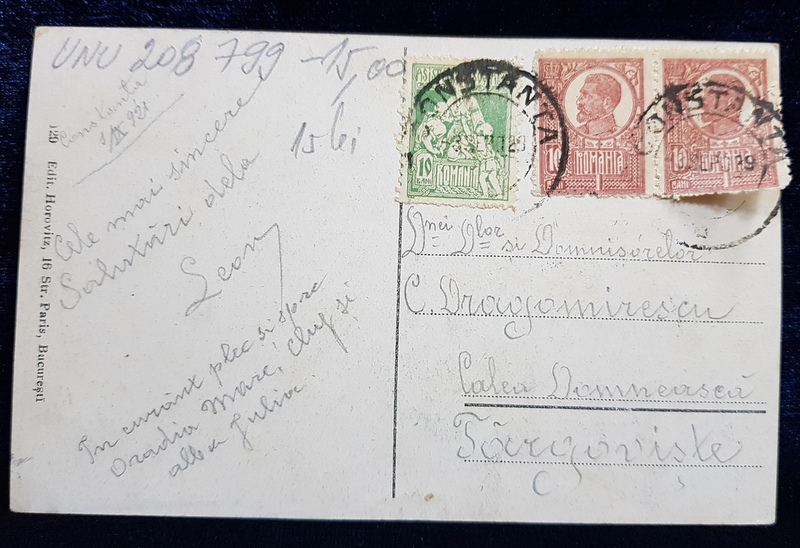 UNU 208 799 -15,00
15 lei
Constanta
1/IX 921
Cele mai sincere
Salutări dela
Leon
In curânt plec si spre
Oradia Mare, Cluj și
alba Julia.
129 Edit. Horovitz, 16 Str. Paris, București
10
BANI
ROMANIA
CONSTANTA
10
ROMANIA
BANI
10
BANI
CONSTANTA
Dnei Dlor si Domnisórelor
C. Dragomirescu
Calea Domnească
Târgoviște